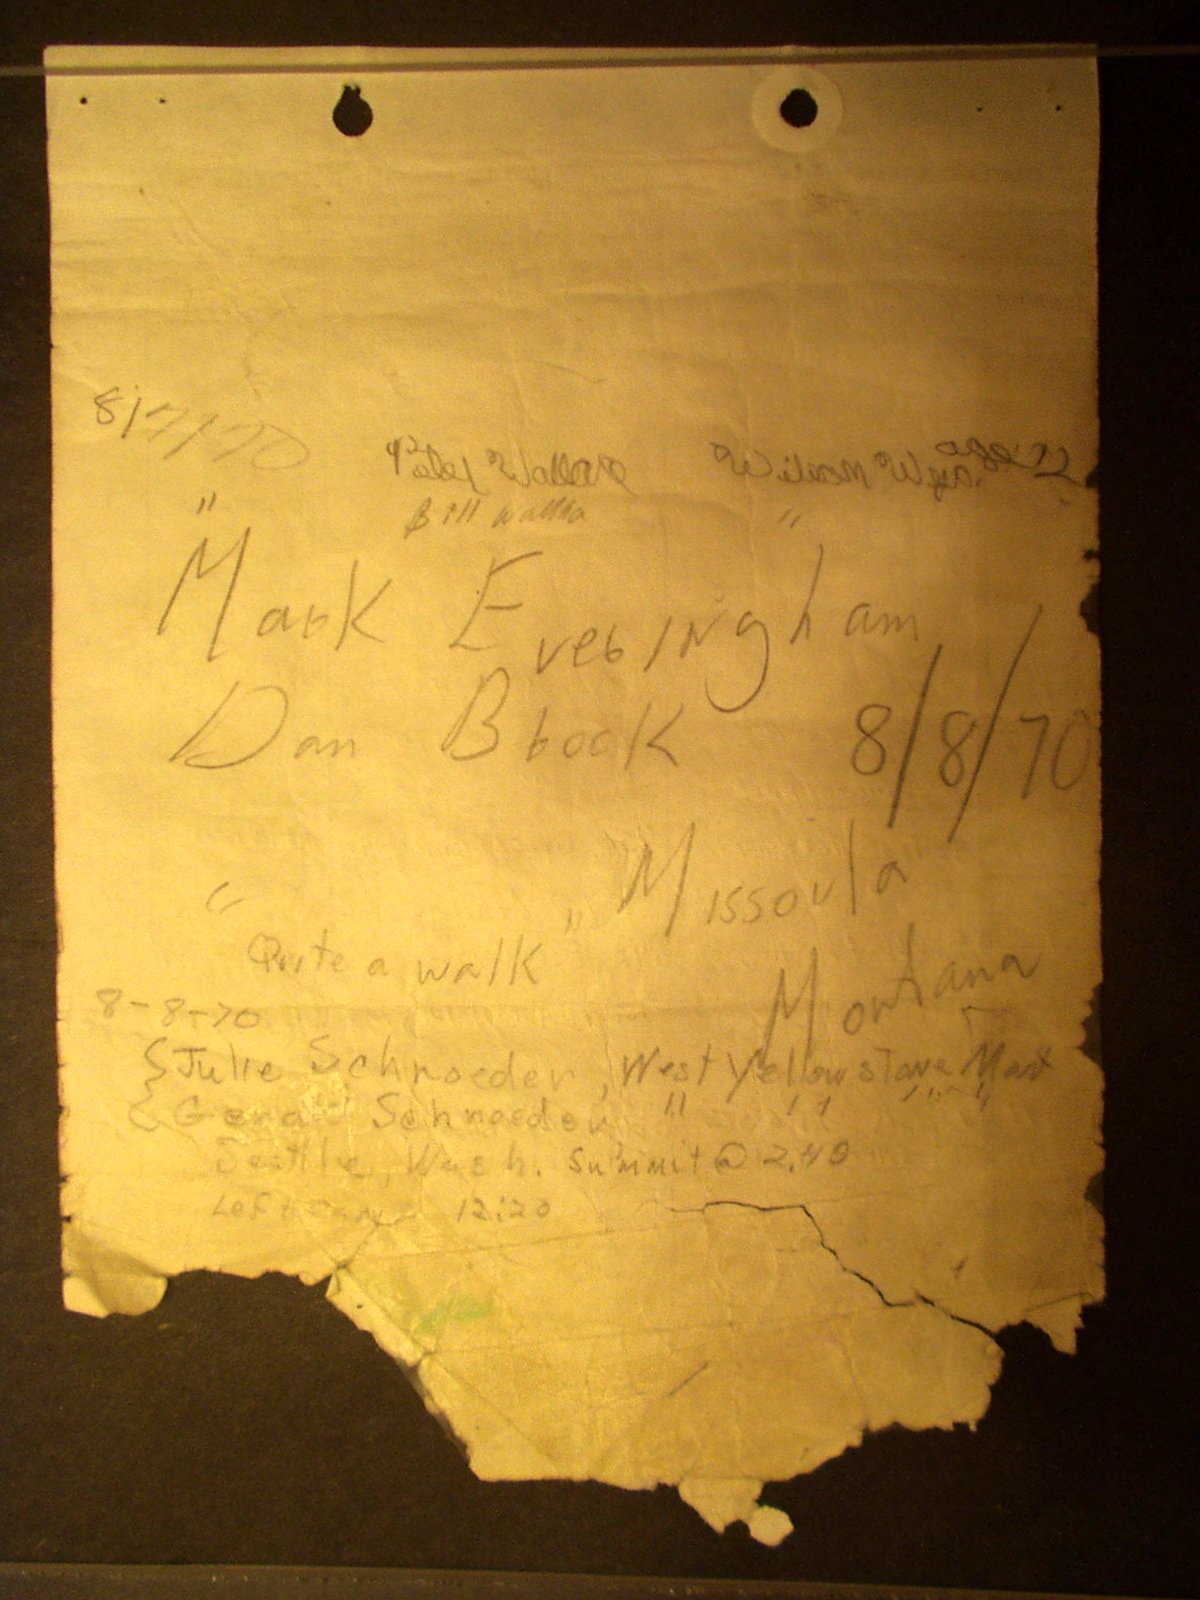 8/7/70 Peter Wallace William Wyo.
" Bill Walka "
Mark Everingham
Dan Brock 8/8/70
Missoula
" Quite a walk "
Montana
8-8-70
{ Julie Schroeder, West Yellowstone Mont
{ Gerald Schroeder " " " "
Seattle, Wash. Summit @ 2:40
Left camp 12:20